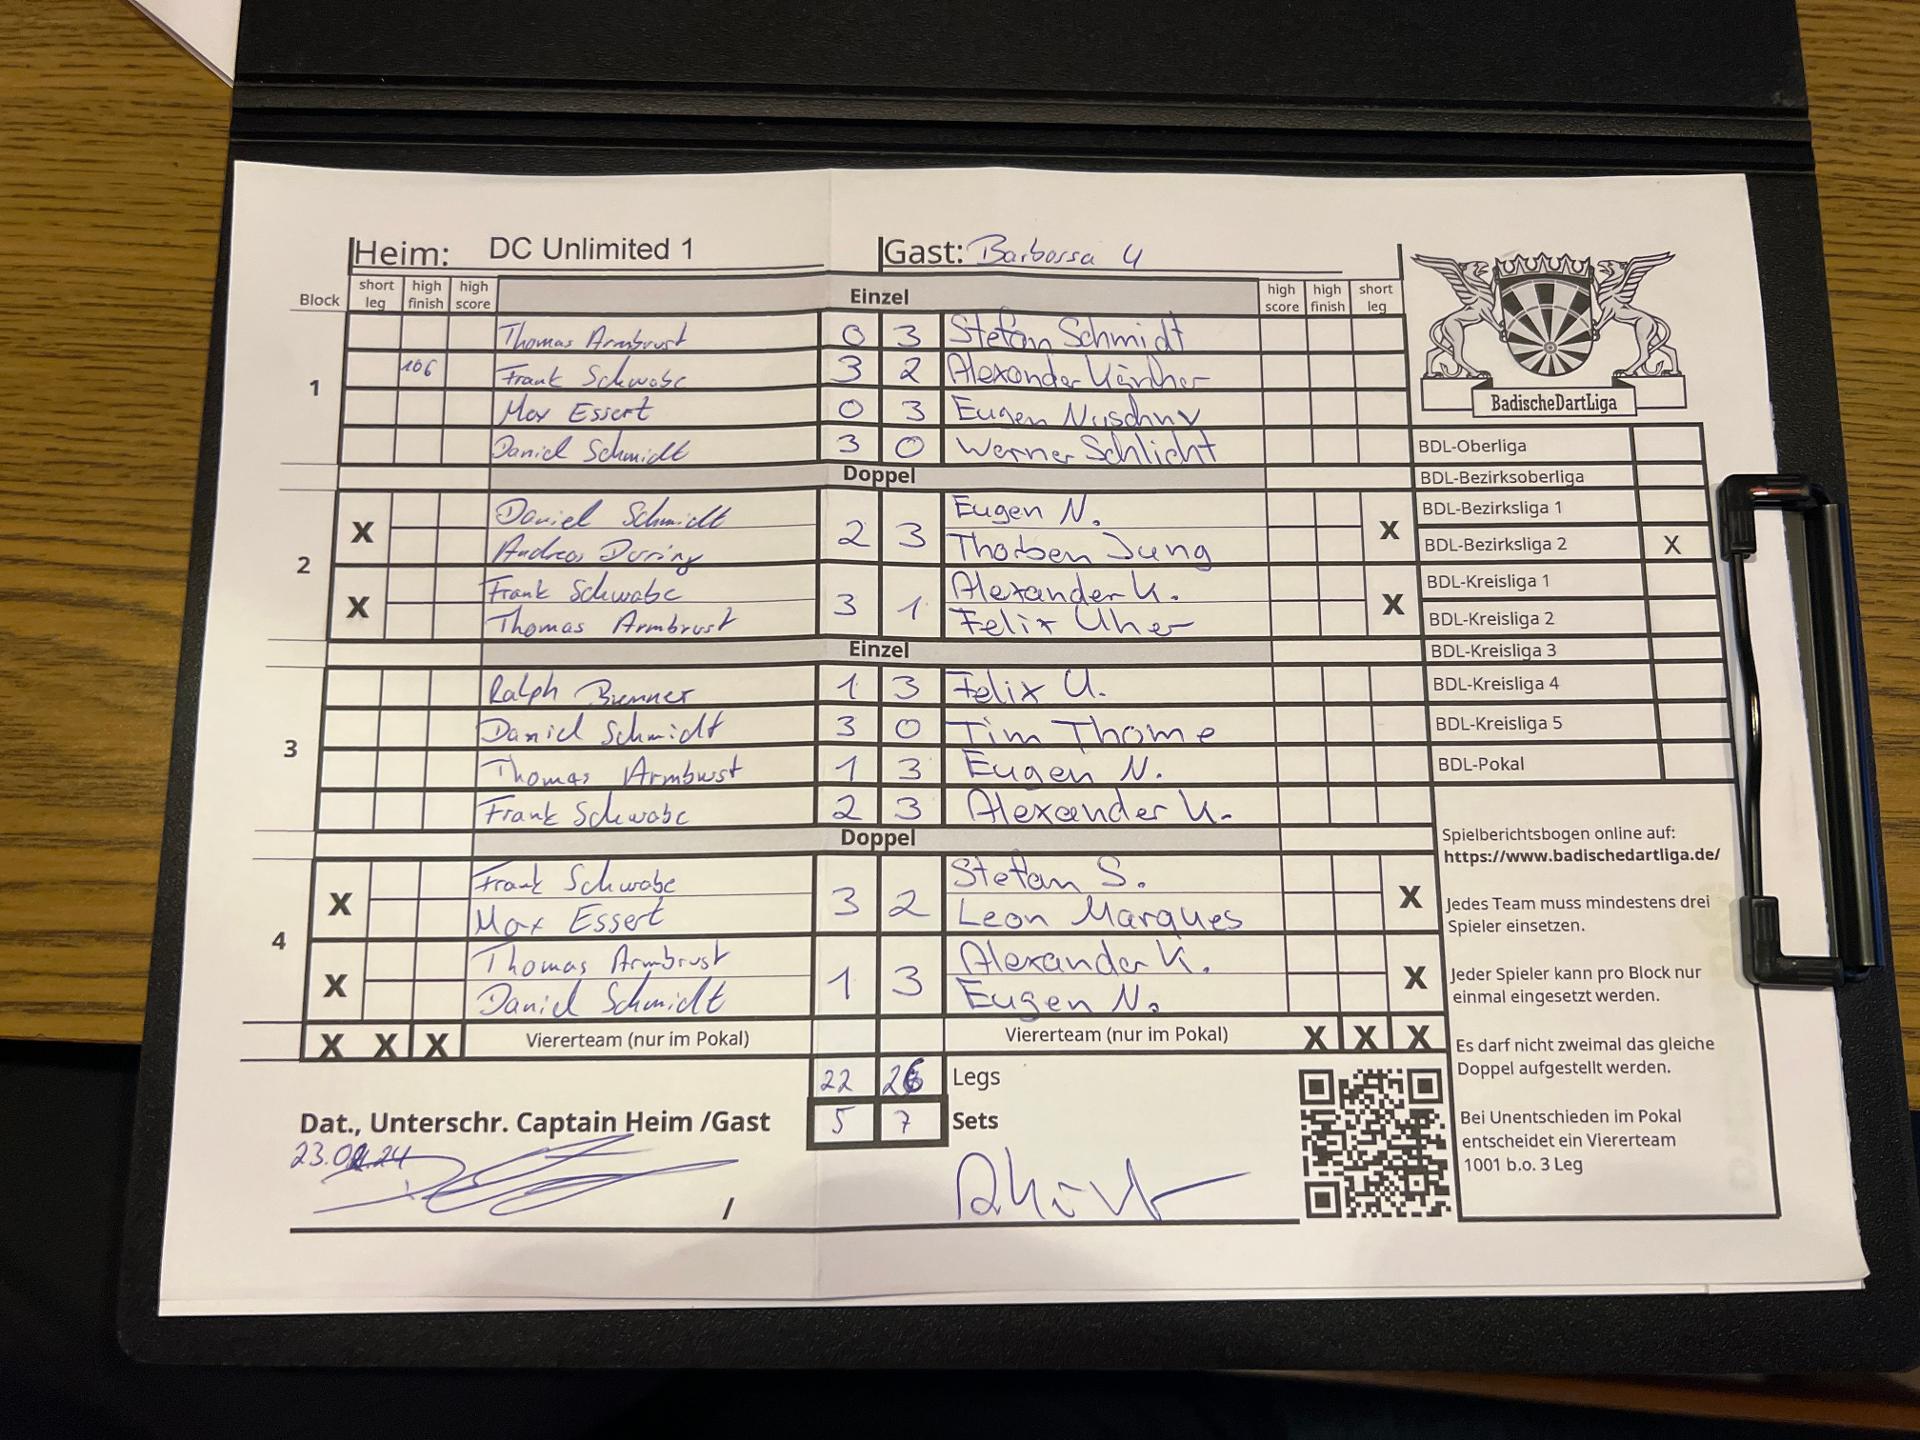 Heim: DC Unlimited 1 Gast: Barbossa 4
Block short leg high finish high score Einzel high score high finish short leg
1
Thomas Armbrust 0 3 Stefan Schmidt
106 Frank Schwabe 3 2 Alexander Kärcher
Max Essert 0 3 Eugen Nuschny
Daniel Schmidt 3 0 Werner Schlicht
Doppel
2
X Daniel Schmidt 2 3 Eugen N. X
Andreas Dorring Thorben Jung
X Frank Schwabe 3 1 Alexander K. X
Thomas Armbrust Felix Uher
Einzel
3
Ralph Brenner 1 3 Felix U.
Daniel Schmidt 3 0 Tim Thome
Thomas Armbrust 1 3 Eugen N.
Frank Schwabe 2 3 Alexander K.
Doppel
4
X Frank Schwabe 3 2 Stefan S. X
Max Essert Leon Marques
X Thomas Armbrust 1 3 Alexander K. X
Daniel Schmidt Eugen N.
X X X Viererteam (nur im Pokal) Viererteam (nur im Pokal) X X X
22 26 Legs
Dat., Unterschr. Captain Heim /Gast 5 7 Sets
/
BadischeDartLiga
BDL-Oberliga
BDL-Bezirksoberliga
BDL-Bezirksliga 1
BDL-Bezirksliga 2 X
BDL-Kreisliga 1
BDL-Kreisliga 2
BDL-Kreisliga 3
BDL-Kreisliga 4
BDL-Kreisliga 5
BDL-Pokal
Spielberichtsbogen online auf:
https://www.badischedartliga.de/
Jedes Team muss mindestens drei
Spieler einsetzen.
Jeder Spieler kann pro Block nur
einmal eingesetzt werden.
Es darf nicht zweimal das gleiche
Doppel aufgestellt werden.
Bei Unentschieden im Pokal
entscheidet ein Viererteam
1001 b.o. 3 Leg